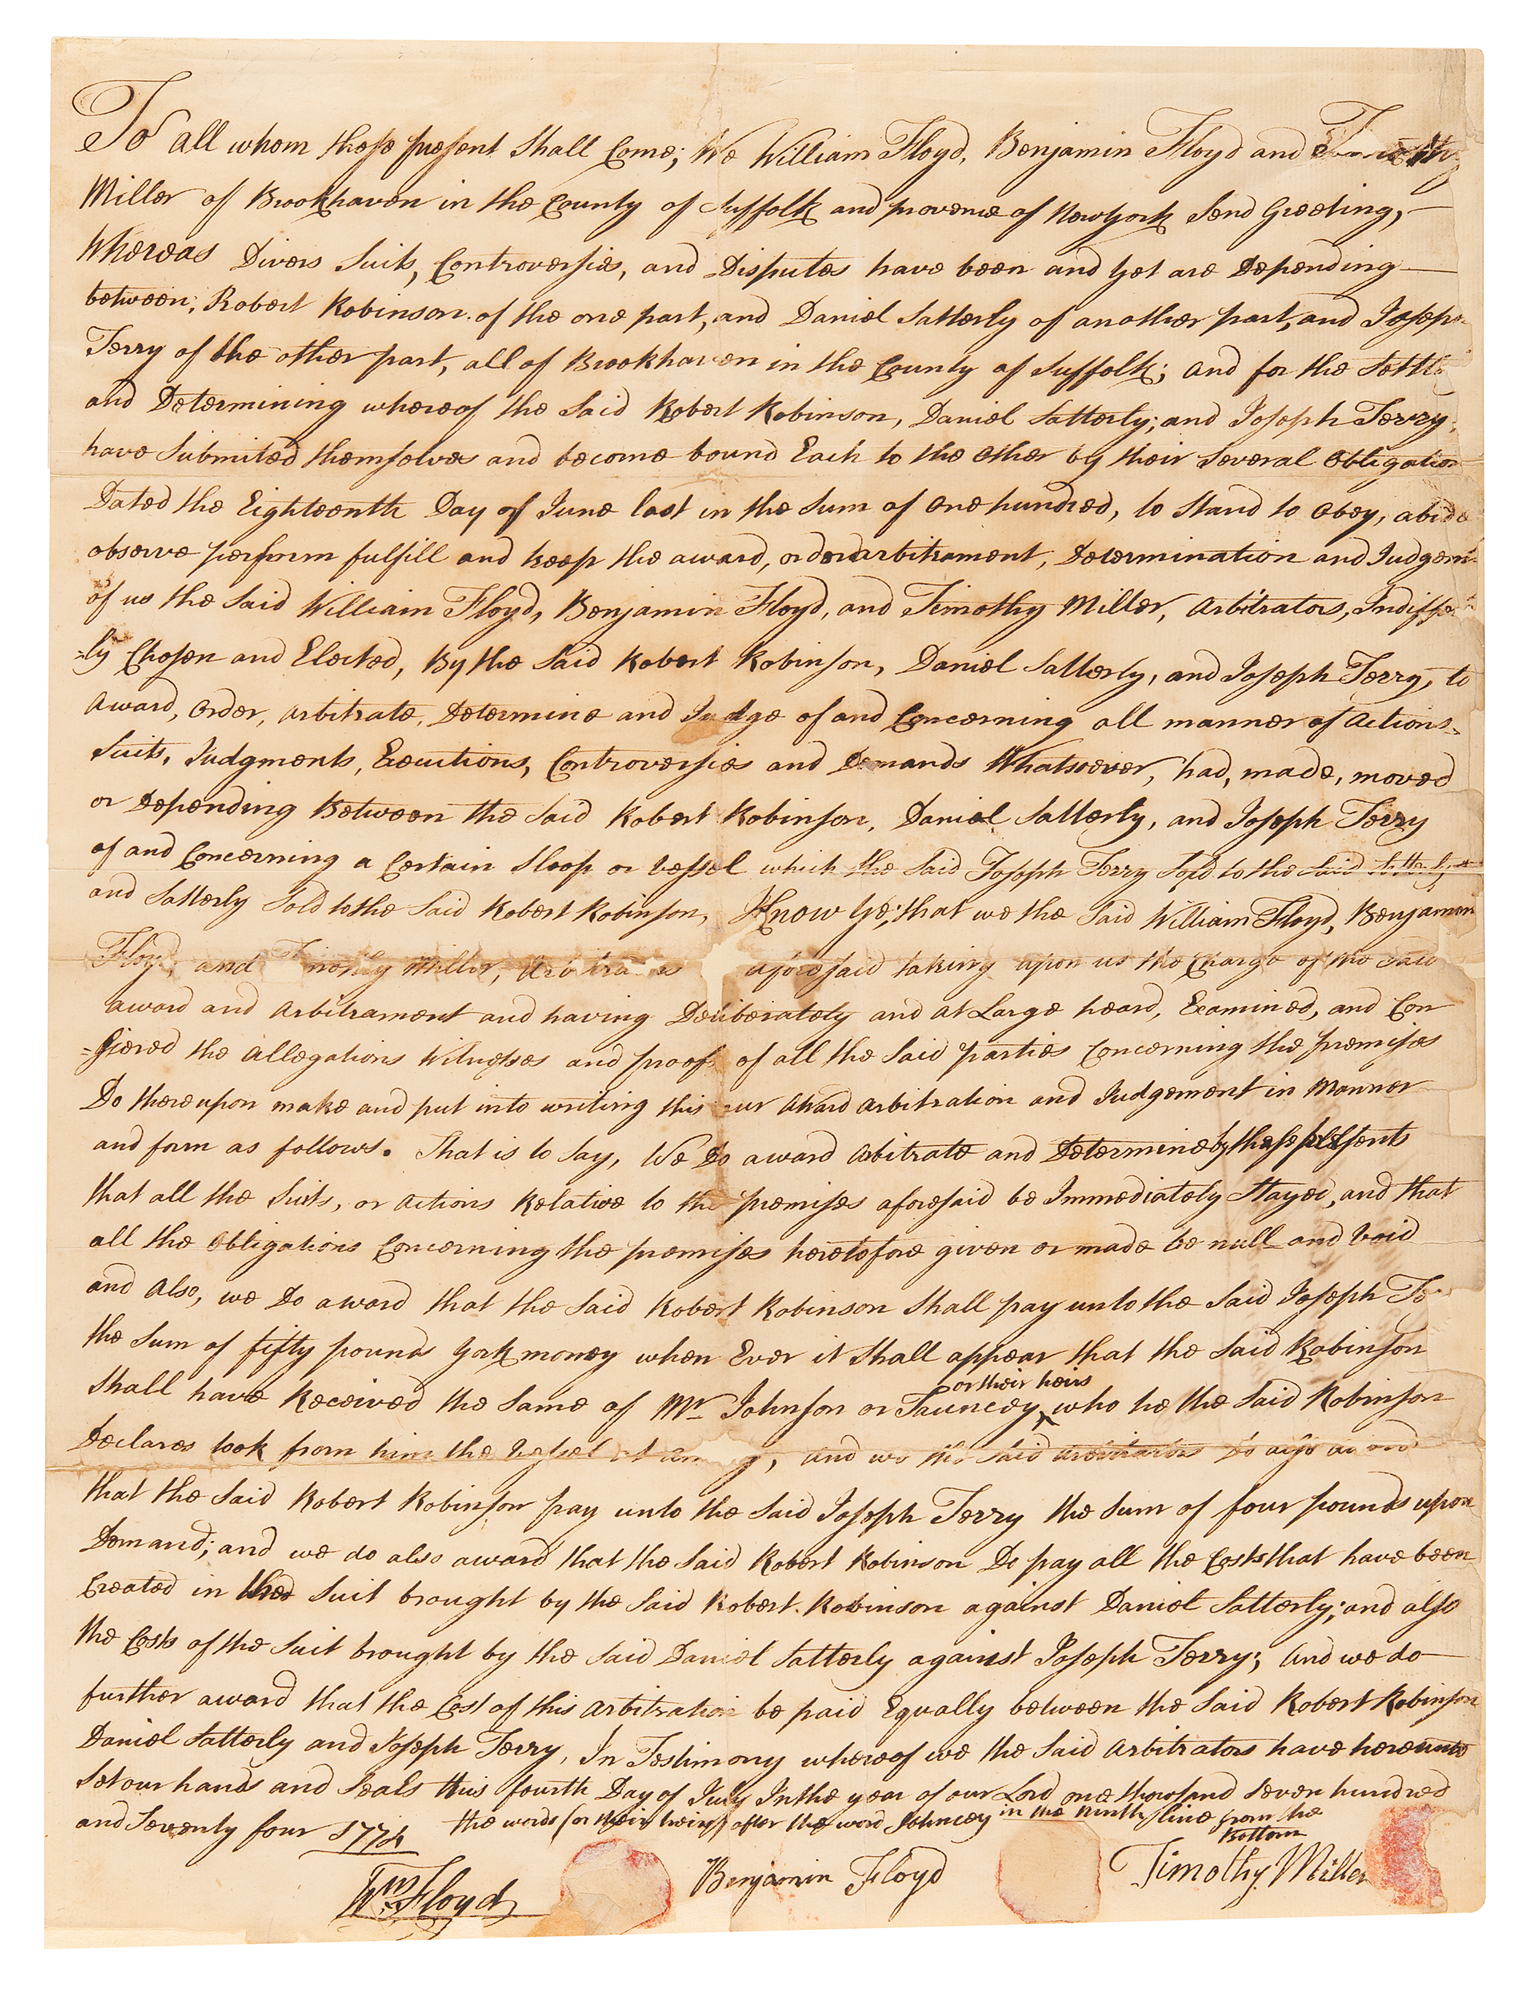 To all whom these present Shall Come; We William Floyd, Benjamin Floyd and
Miller of Brookhaven in the County of Suffolk and provence of NewYork Send Greeting,
Whereas Divers Suits, Controversies, and Disputes have been and yet are Depending
between, Robert Robinson of the one part, and Daniel Satterly of another part, and Joseph
Terry of the other part, all of Brookhaven in the County of Suffolk; and for the
and Determining whereof the Said Robert Robinson, Daniel Satterly; and Joseph Terry,
have Submited themselves and become bound Each to the other by their Several obligation
Dated the Eighteenth Day of June last in the Sum of one hundred, to Stand to obey, abide
observe perform fulfill and keep the award, order arbitrament, Determination and Judgem
of us the Said William Floyd, Benjamin Floyd, and Timothy Miller, arbitrators, Indiffe
=ly Chosen and Elected, By the Said Robert Robinson, Daniel Satterly, and Joseph Terry, to
award, order, arbitrate, Determine and Judge of and Concerning all manner of actions
Suits, Judgments, Executions, Controversies and Demands Whatsoever, had, made, moved
or Depending Between the Said Robert Robinson, Daniel Satterly, and Joseph Terry
of and Concerning a Certain Sloop or Vessel which the Said Joseph Terry Sold to the Said Satterly
and Satterly Sold to the Said Robert Robinson, Know Ye; that we the Said William Floyd, Benjamin
Floyd, and Timothy Miller, aforesaid taking upon us the Charge of the Said
award and arbitrament and having Deliberately and at Large heard, Examined, and Con
=sidered the allegations Witnesses and proofs of all the Said parties Concerning the premises
Do thereupon make and put into writing this our Award arbitration and Judgement in Manner
and form as follows. That is to Say, We Do award arbitrate and Determine by these presents
that all the Suits, or actions Relative to the premises aforesaid be Immediately Stayed, and that
all the obligations Concerning the premises heretofore given or made be null and Void
and Also, we Do award that the Said Robert Robinson Shall pay unto the Said Joseph
the Sum of fifty pounds York money when Ever it Shall appear that the Said Robinson
or their heirs
Shall have Received the Same of Mr Johnson or who he the Said Robinson
Declares took from him the Vessel and we the Said arbitrators Do also award
that the Said Robert Robinson pay unto the Said Joseph Terry the Sum of four pounds upon
Demand; and we do also award that the Said Robert Robinson Do pay all the Costs that have been
Created in the Suit brought by the Said Robert Robinson against Daniel Satterly; and also
the Costs of the Suit brought by the Said Daniel Satterly against Joseph Terry; And we do
further award that the Cost of this arbitration be paid Equally between the Said Robert Robinson
Daniel Satterly and Joseph Terry, In Testimony whereof we the Said Arbitrators have hereunto
Set our hands and Seals this fourth Day of July In the year of our Lord one thousand Seven hundred
and Seventy four 1774 the words (or their heirs) after the word in the Ninth line from the
Bottom
Wm Floyd Benjamin Floyd Timothy Miller